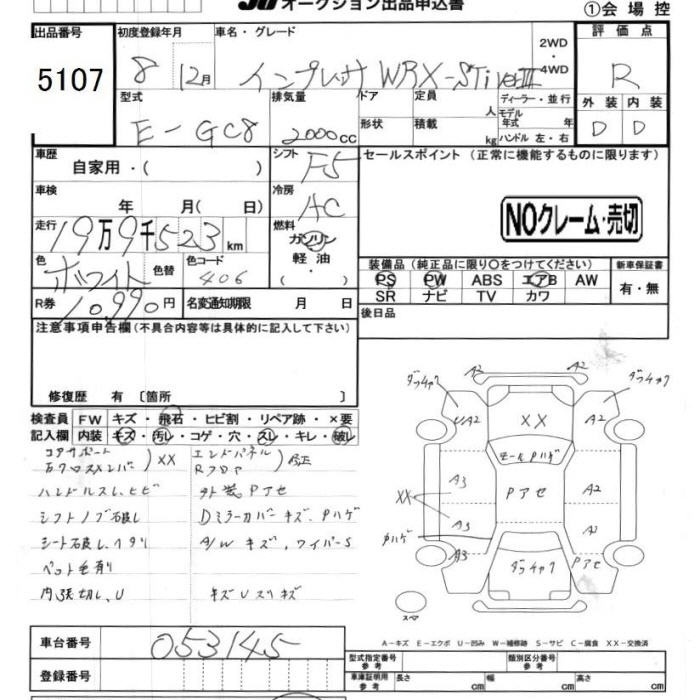 JU オークション出品申込書
① 会場控
出品番号 初度登録年月 車名・グレード 2WD・4WD 評価点
5107 8 12月 インプレッサ WRX-STi verIII R
型式 排気量 ドア 定員 人 ディーラー・並行 外装 内装
E-GC8 2000cc 形状 積載 kg モデル年式 年 ハンドル 左・右 D D
車歴 自家用・( ) シフト F5 セールスポイント (正常に機能するものに限ります)
車検 年 月( 日) 冷房 AC
NOクレーム・売切
走行 19万9千523km 燃料 ガソリン 軽油・( )
色 ホワイト 色替 色コード 406
装備品 (純正品に限り○をつけてください) 新車保証書
PS PW ABS エアB AW 有・無
SR ナビ TV カワ
R券 10,990円 名変通知期限 月 日
後日品
注意事項申告欄(不具合内容等は具体的に記入して下さい)
修復歴 有 〔箇所 〕
検査員記入欄 FW キズ・飛石・ヒビ割・リペア跡・×要
内装 キズ・汚レ・コゲ・穴・スレ・キレ・破レ
コアサポート
左クロスメンバー ) XX
エンドパネル
Rフロア ) 修正
ハンドルスレ、ヒビ 外装Pアセ
シフトノブ破レ Dミラーカバーキズ、Pハゲ
シート破レ、ヘタリ A/Wキズ、ワイパーS
ペット毛有リ
内張切レ、U キズUスリキズ
A2 A2
ダッチャク ダッチャク
UA2 XX A2
モールPハゲ
A3 Pアセ A2
XX
A3 A2
Pハゲ
A3 ダッチャク Pアセ
スペア
A-キズ E-エクボ U-凹み W-補修跡 S-サビ C-腐食 XX-交換済
車台番号 053145
型式指定番号 類別区分番号
登録番号 車庫証明用参考 長さ cm 幅 cm 高さ cm